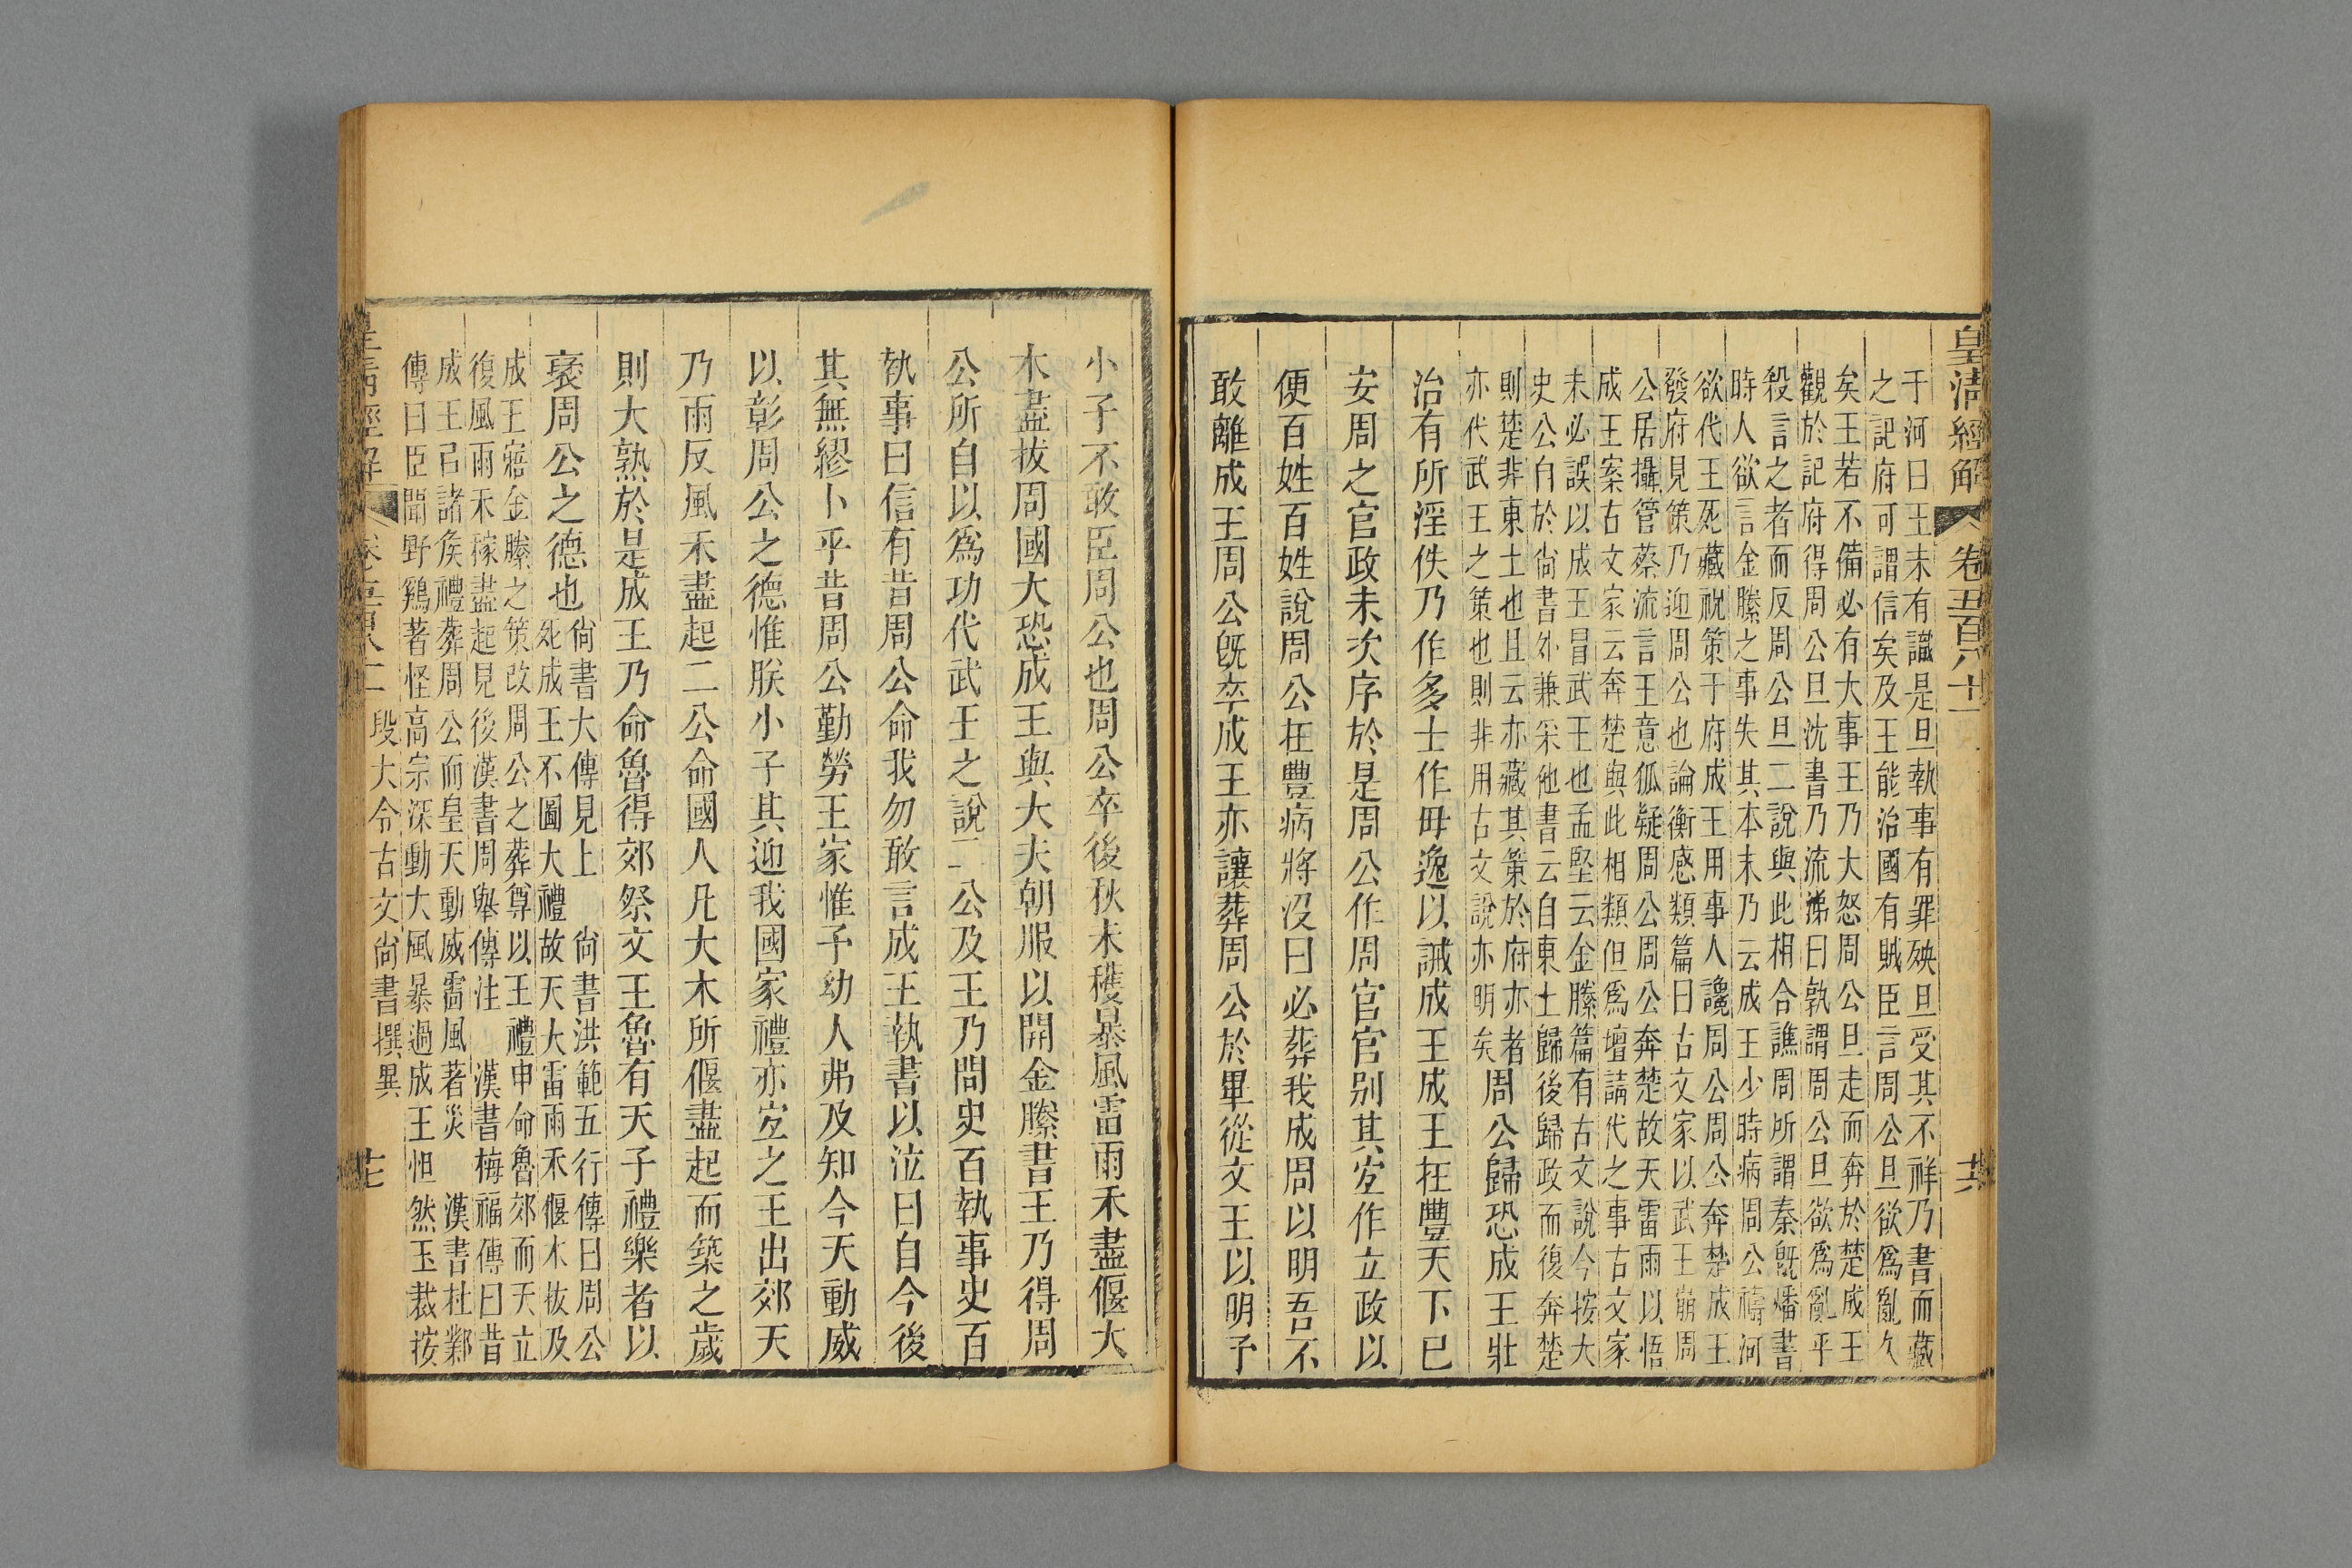 皇淸經解 卷五百八十二 十六
于河曰王未有識是旦執事有罪殃旦受其不祥乃書而藏
之記府可謂信矣及王能治國有賊臣言周公旦欲爲亂久
矣王若不備必有大事王乃大怒周公旦走而奔於楚成王
觀於記府得周公旦沈書乃流涕曰孰謂周公旦欲爲亂乎
殺言之者而反周公旦二說與此相合譙周所謂秦旣燔書
時人欲言金縢之事失其本末乃云成王少時病周公禱河
欲代王死藏祝策于府成王用事人讒周公周公奔楚成王
發府見策乃迎周公也論衡感類篇曰古文家以武王崩周
公居攝管蔡流言王意狐疑周公周公奔楚故天雷雨以悟
成王案古文家云奔楚與此相類但爲壇請代之事古文家
未必誤以成王冒武王也孟堅云金縢篇有古文說今按大
史公自於尙書外兼采他書云自東土歸後歸政而復奔楚
則楚非東土也且云亦藏其策於府亦者
亦代武王之策也則非用古文說亦明矣
周公歸恐成王壯
治有所淫佚乃作多士作毋逸以誡成王成王在豐天下已
安周之官政未次序於是周公作周官官别其宜作立政以
便百姓百姓說周公在豐病將没曰必葬我成周以明吾不
敢離成王周公旣卒成王亦讓葬周公於畢從文王以明予
小子不敢臣周公也周公卒後秋未穫暴風雷雨禾盡偃大
木盡拔周國大恐成王與大夫朝服以開金縢書王乃得周
公所自以爲功代武王之說二公及王乃問史百執事史百
執事曰信有昔周公命我勿敢言成王執書以泣曰自今後
其無繆卜乎昔周公勤勞王家惟予幼人弗及知今天動威
以彰周公之德惟朕小子其迎我國家禮亦宜之王出郊天
乃雨反風禾盡起二公命國人凡大木所偃盡起而築之歲
則大孰於是成王乃命魯得郊祭文王魯有天子禮樂者以
襃周公之德也
尙書大傳見上 尙書洪範五行傳曰周公
死成王不圖大禮故天大雷雨禾偃木拔及
成王寤金縢之策改周公之葬尊以王禮申命魯郊而天立
復風雨禾稼盡起見後漢書周舉傳注 漢書梅福傳曰昔
成王㠯諸侯禮葬周公而皇天動威雷風著災 漢書杜鄴
傳曰臣聞野鷄著怪高宗深動大風暴過成王怛然玉裁按
皇淸經解 卷五百八十二 段大令古文尙書撰異 十七